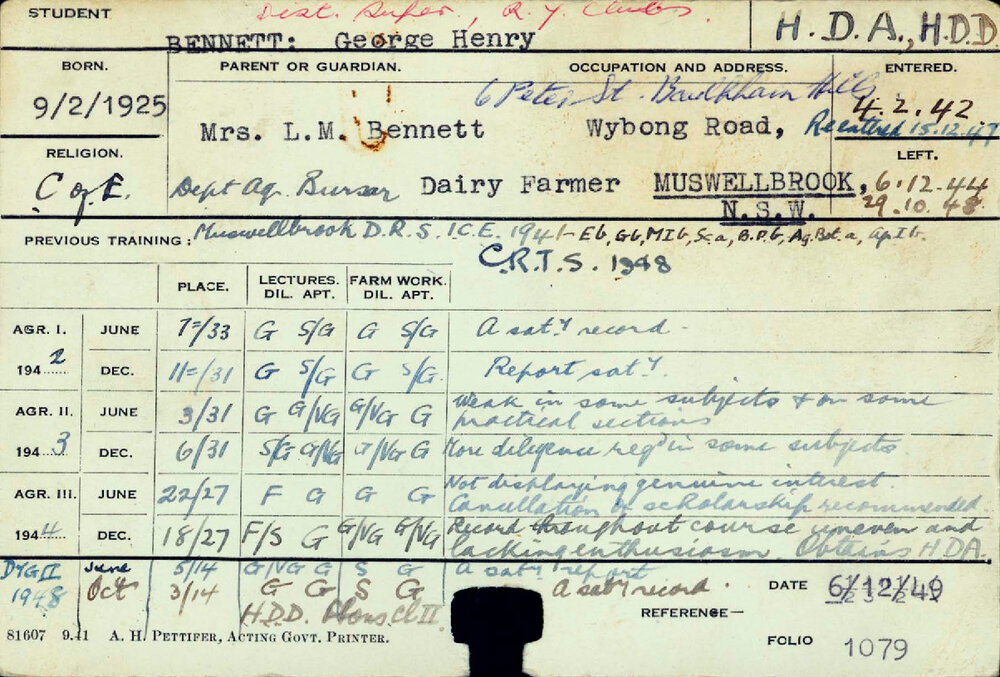 STUDENT
Dist. Super., R. Y. Clubs.
BENNETT: George Henry
H.D.A., H.D.D
BORN.
PARENT OR GUARDIAN.
OCCUPATION AND ADDRESS.
ENTERED.
6 Peter St. Baulkham Hills
9/2/1925
4.2.42
Mrs. L.M. Bennett
Wybong Road,
Reentered 15.12.47
RELIGION.
LEFT.
C of E.
Dept Ag. Bursar
Dairy Farmer
MUSWELLBROOK,
6.12.44
N.S.W.
29.10.48
PREVIOUS TRAINING:
Muswellbrook D.R.S. I.C.E. 1941 - Eb, Gb, MIb, S.a, B.P.b, Ag.Bot.a, Ap I b.
C.R.T.S. 1948
PLACE.
LECTURES.
DIL. APT.
FARM WORK.
DIL. APT.
AGR. I. JUNE 7=/33 G S/G G S/G A sat.y record.
1942 DEC. 11=/31 G S/G G S/G. Report sat.y.
AGR. II. JUNE 3/31 G G/VG G/VG G Weak in some subjects & on some
practical sections
1943 DEC. 6/31 S/G G/VG G/VG G More diligence req'd in some subjects.
AGR. III. JUNE 22/27 F G G G Not displaying genuine interest.
Cancellation of scholarship recommended
1944 DEC. 18/27 F/S G G/VG G/VG Record throughout course uneven and
lacking enthusiasm. Obtains HDA.
DYG II June 5/14 G/VG G S G A sat.y report
1948 Oct 3/14 G G S G A sat.y record.
H.D.D. Hons. Cl II
DATE 6/12/49
REFERENCE—
FOLIO 1079
81607 9.41 A. H. PETTIFER, ACTING GOVT. PRINTER.